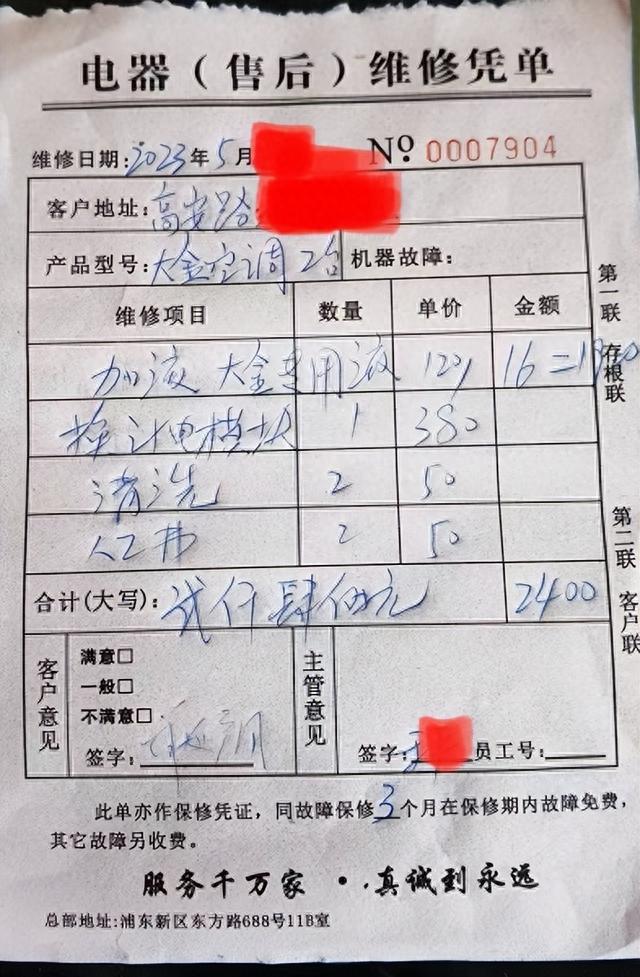 电器（售后）维修凭单
维修日期:2023年5月 № 0007904
客户地址:高安路
产品型号:大金空调2台 机器故障:
维修项目 数量 单价 金额
加液 大金专用液 120 16=1920
换计电模块 1 380
清洗 2 50
人工费 2 50
合计(大写):贰仟肆佰元 2400
客户意见
满意□
一般□
不满意□
签字:
主管意见
签字: 员工号:
第一联 存根联
第二联 客户联
此单亦作保修凭证,同故障保修3个月在保修期内故障免费,
其它故障另收费。
服务千万家 · 真诚到永远
总部地址:浦东新区东方路688号11B室